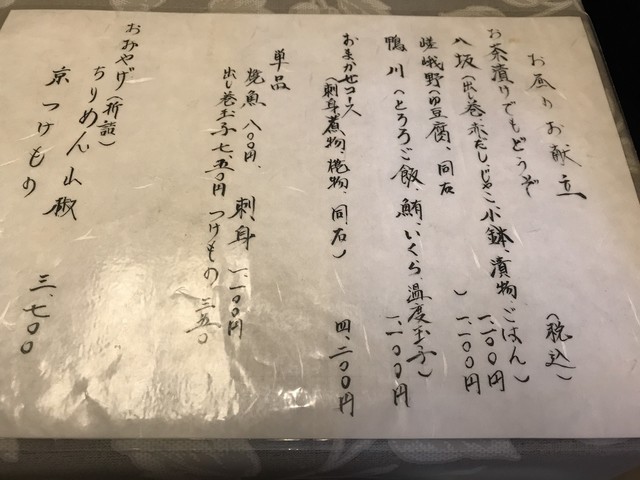 お昼のお献立
(税込)
お茶漬けでもどうぞ
八坂(出し巻、赤だし、じゃこ、小鉢、漬物、ごはん)
一、一〇〇円
嵯峨野(ゆ豆腐、同右)
一、一〇〇円
鴨川(とろろご飯、鮪、いくら、温度玉子)
一、一〇〇円
おまかせコース
(刺身、煮物、焼物、同右)
四、二〇〇円
単品
焼魚 八〇〇円、刺身 一、一〇〇円
出し巻玉子 七、五〇円 つけもの 三五〇
おみやげ(折詰)
ちりめん山椒
京つけもの 三、七〇〇